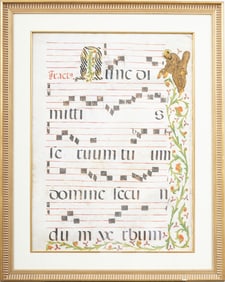 Tract9 Nunc di
mitti s
se ruum tu um
domine secu n
du m ver bum